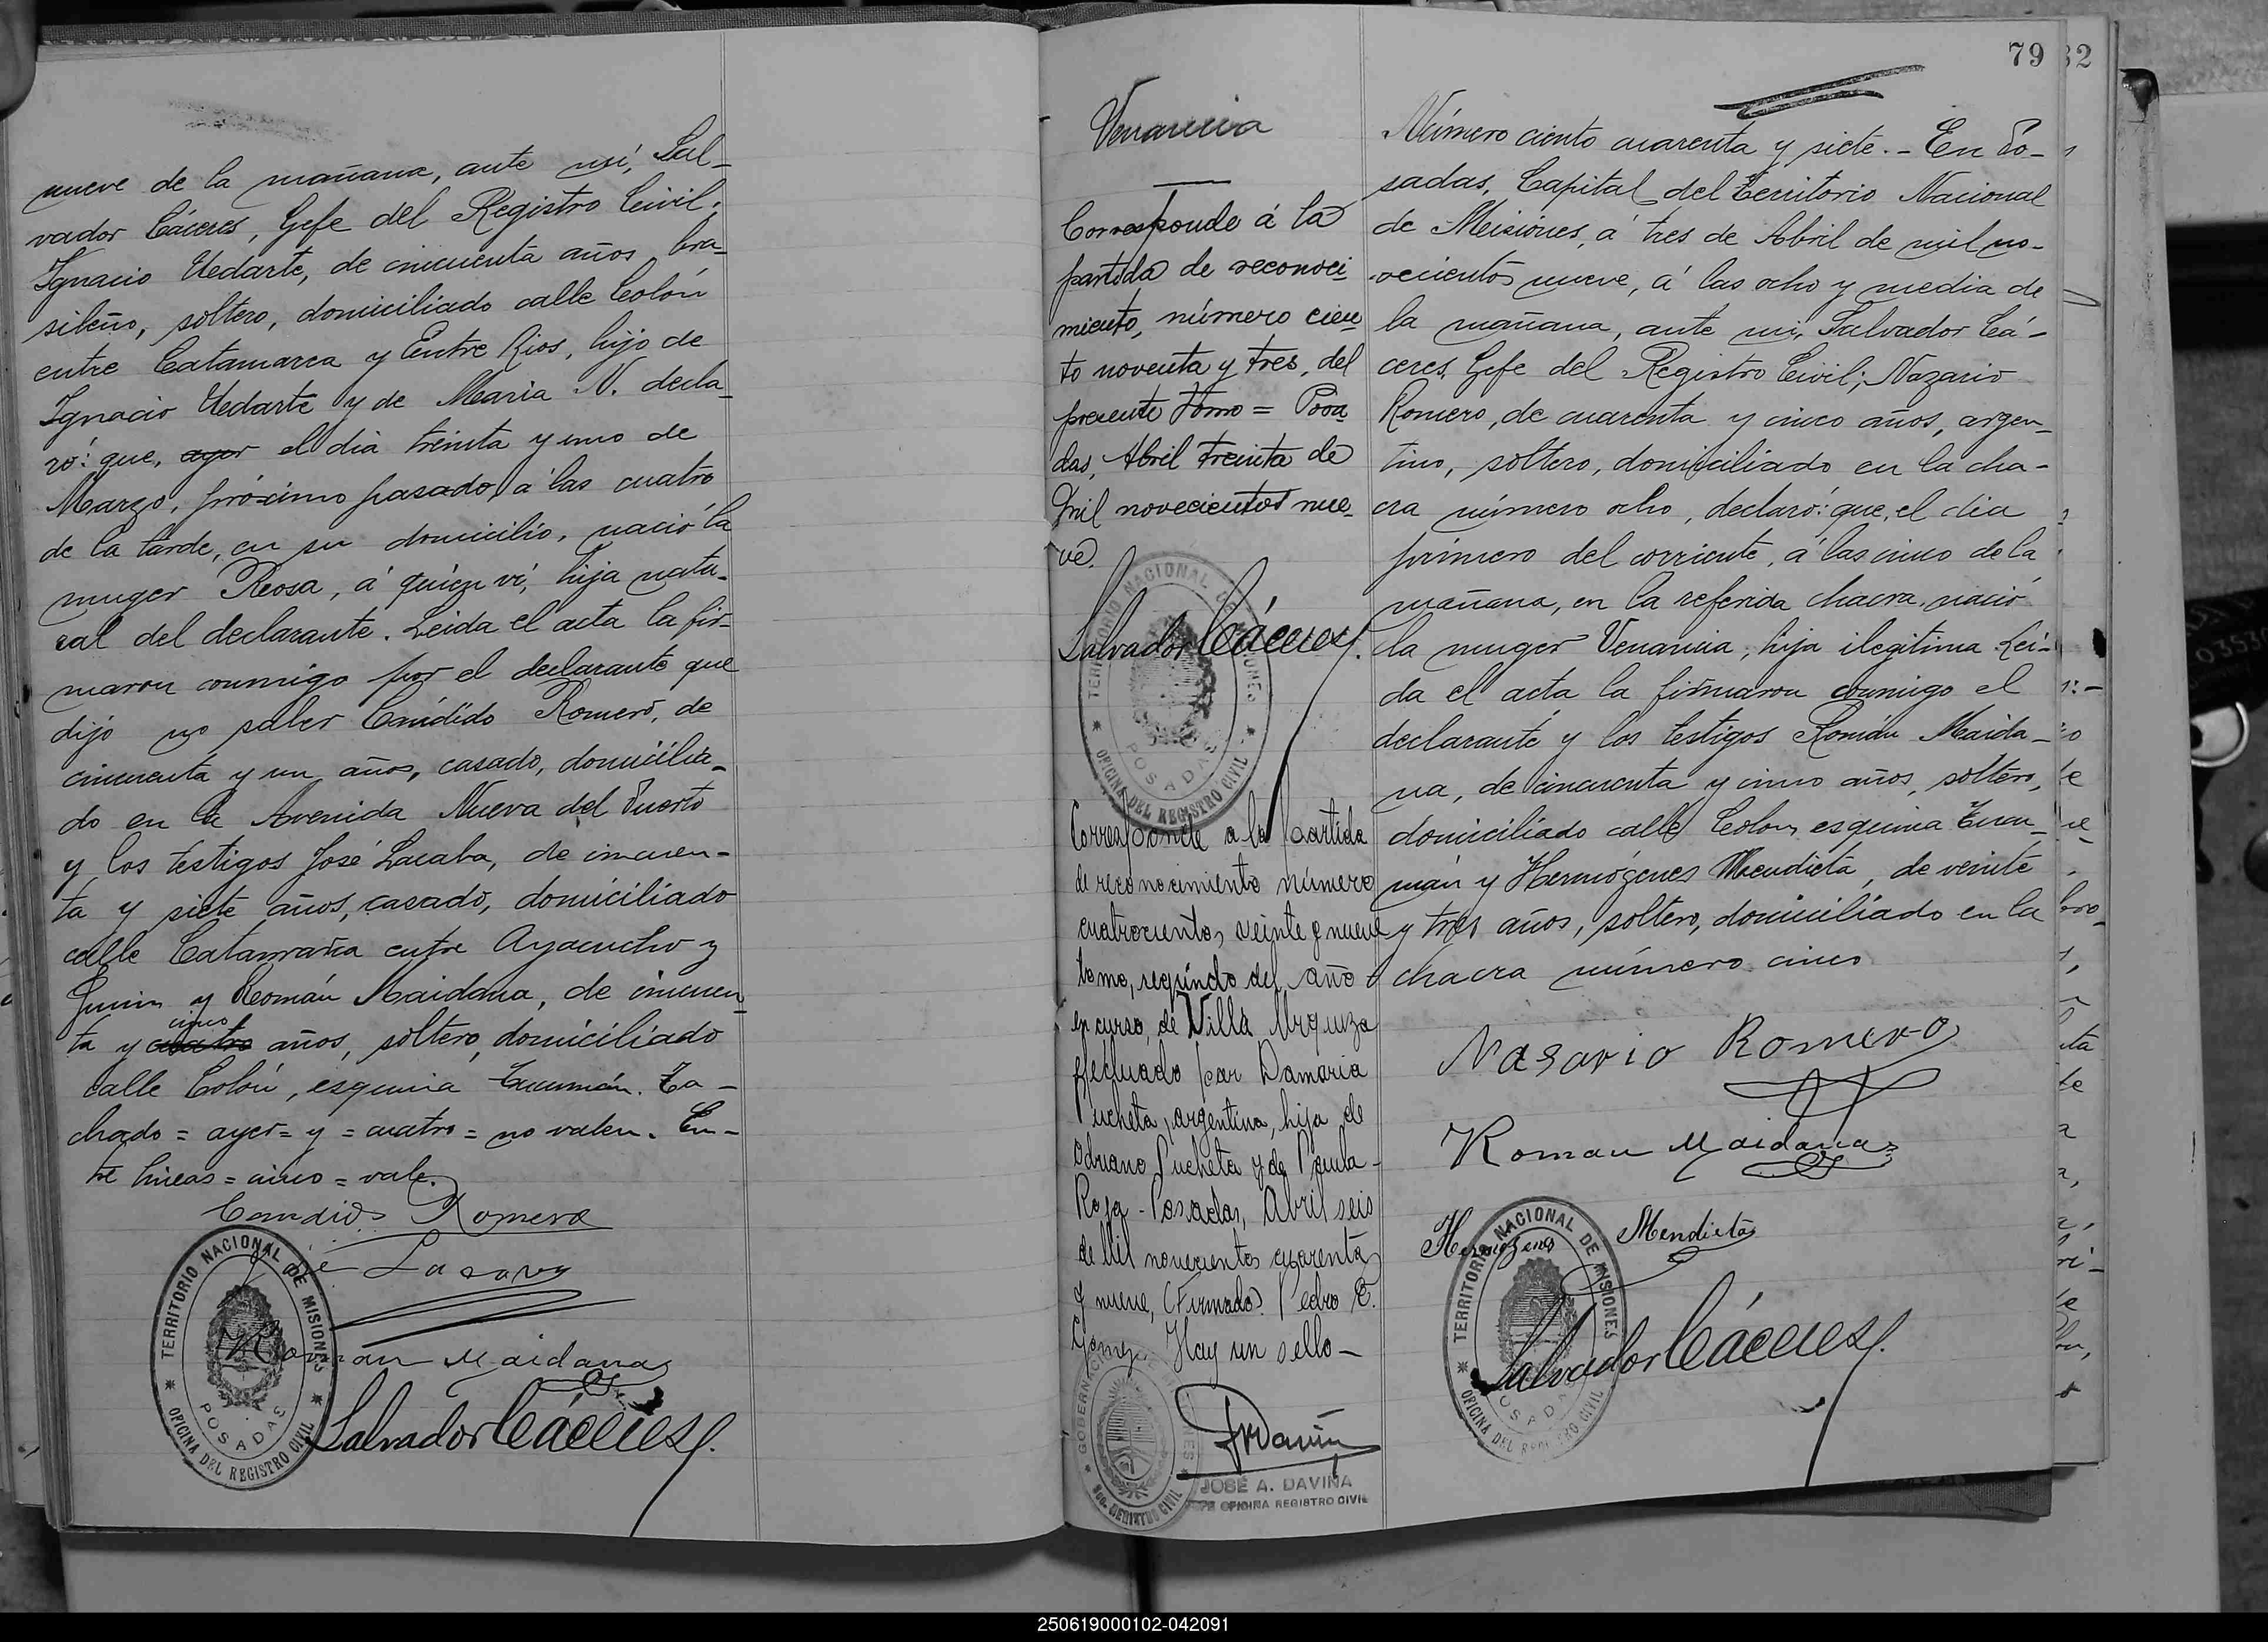 nueve de la mañana, ante mí, Sal-
vador Cáceres, Gefe del Registro Civil;
Ignacio Uedarte, de cincuenta años bra-
sileño, soltero, domiciliado calle Colón
entre Catamarca y Entre Rios, hijo de
Ignacio Uedarte y de Maria N. decla-
ró: que, ayer el dia treinta y uno de
Marzo, próximo pasado, á las cuatro
de la tarde, en su domicilio, nació la
muger Rosa, á quien ví, hija natu-
ral del declarante. Leida el acta la fir-
maron conmigo por el declarante que
dijo no saber Cándido Romero, de
cincuenta y un años, casado, domicilia-
do en la Avenida Nueva del Puerto
y los testigos José Lacaba, de cincuen-
ta y siete años, casado, domiciliado
calle Catamarca entre Ayacucho y
Junin y Román Maidana, de cincuen-
cinco
ta y cuatro años, soltero, domiciliado
calle Colón, esquina Tucumán. Ta-
chado = ayer = y = cuatro = no valen. En-
tre lineas = cinco = vale.
Candido Romero
Roman Maidana
Salvador Cáceres
TERRITORIO NACIONAL DE MISIONES
POSADAS
OFICINA DEL REGISTRO CIVIL
79
32
Venancia
Corresponde á la
partida de reconoci
miento, número cien
to noventa y tres, del
presente tomo = Posa
das, Abril treinta de
Mil novecientos nue-
ve.
Salvador Cáceres
TERRITORIO NACIONAL DE MISIONES
POSADAS
OFICINA DEL REGISTRO CIVIL
Corresponde a la partida
de reconocimiento número
cuatrocientos veinte y nueve
tomo, segundo del año
en curso, de Villa Urquiza
efectuado por Damaria
Pucheta, argentina, hija de
Adriano Pucheta y de Paula
Roja - Posadas, Abril seis
de Mil novecientos cuarenta
y nueve, (Firmado) Pedro E.
Gómez. Hay un sello -
JOSÉ A. DAVIÑA
JEFE OFICINA REGISTRO CIVIL
Número ciento cuarenta y siete. - En Po-
sadas, Capital del Territorio Nacional
de Misiones, á tres de Abril de mil no-
vecientos nueve, á las ocho y media de
la mañana, ante mi, Salvador Cá-
ceres, Gefe del Registro Civil; Nazario
Romero, de cuarenta y cinco años, argen-
tino, soltero, domiciliado en la cha-
cra número ocho, declaró: que, el dia
primero del corriente, á las cinco de la
mañana, en la referida chacra, nació
la muger Venancia, hija ilegitima. Lei-
da el acta la firmaron conmigo el
declarante y los testigos Román Maida-
na, de cincuenta y cinco años, soltero,
domiciliado calle Colon, esquina Tucu-
mán y Hermógenes Mendieta, de veinte
y tres años, soltero, domiciliado en la
chacra número cinco
Nasario Romero
Roman Maidana
Hermogenes Mendieta
Salvador Cáceres
TERRITORIO NACIONAL DE MISIONES
POSADAS
OFICINA DEL REGISTRO CIVIL
250619000102-042091